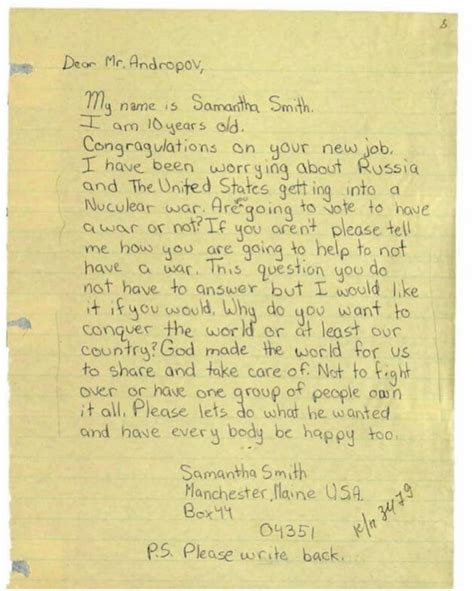 Dear Mr. Andropov,
My name is Samantha Smith.
I am 10 years old.
Congragulations on your new job.
I have been worrying about Russia
and The United States getting into a
Nuculear war. Are going to vote to have
a war or not? If you aren't please tell
me how you are going to help to not
have a war. This question you do
not have to answer but I would like
it if you would. Why do you want to
conquer the world or at least our
country? God made the world for us
to share and take care of. Not to fight
over or have one group of people own
it all. Please lets do what he wanted
and have every body be happy too.
Samantha Smith
Manchester, Maine U.S.A.
Box 44
04351
3479
P.S. Please write back.